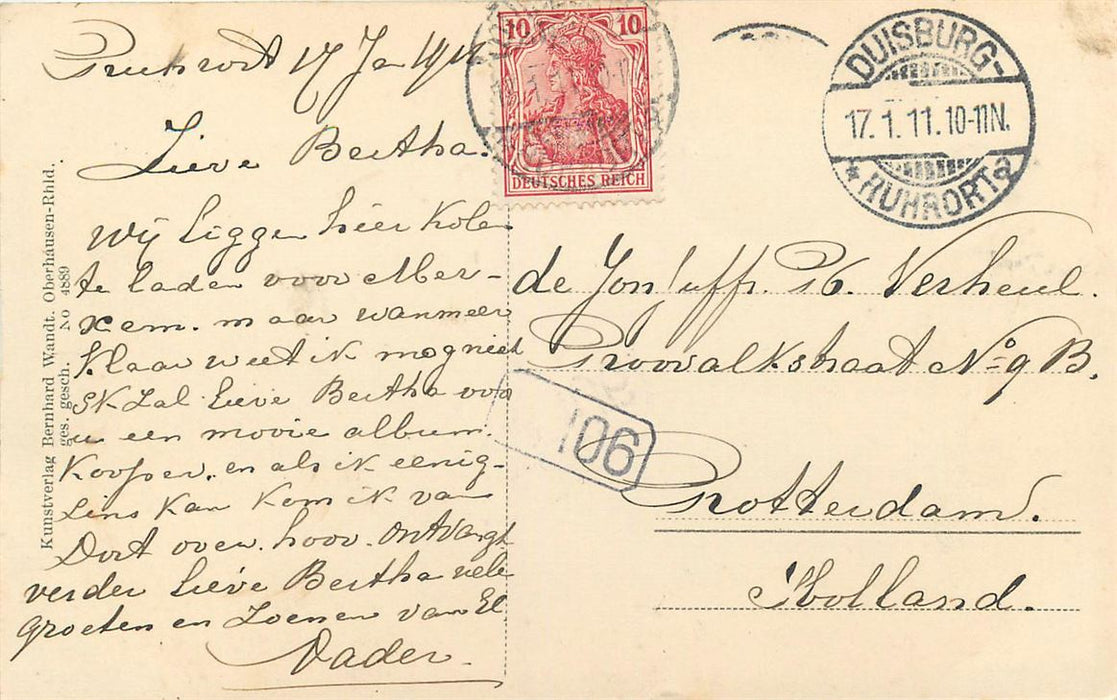 Ruhrort 17 Ja 1911
Lieve Bertha.
Wij liggen hier Kolen
te laden voor Mer-
xem. maar wanneer
klaar weet ik nog niet
Ik Zal Lieve Bertha voor
u een mooie album.
Koopen. en als ik eenig-
sins kan kom ik van
Dort over. hoor. ontvangt
verder Lieve Bertha vele
groeten en Zoenen van Ul
Vader.
Kunstverlag Bernhard Wandt. Oberhausen-Rhld.
ges. gesch. No 4889
10 10
DEUTSCHES REICH
DUISBURG-
17.1.11.10-11N.
* RUHRORT a
de Jonjuffr. B. Verheul.
straat No 9 B.
106
Rotterdam.
Holland.